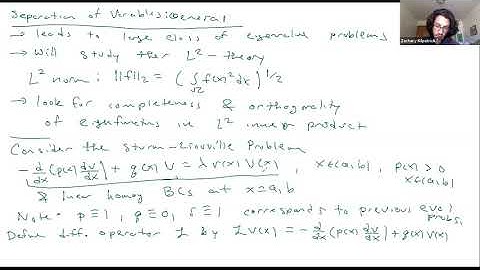 Separation of Variables: General
→ leads to large class of eigenvalue problems
→ will study their L²-theory
L² norm: ||f||₂ = (∫_Ω f(x)² dx)^1/2
→ look for completeness & orthogonality
of eigenfuncs in L² inner product
Consider the Sturm-Liouville Problem
- d/dx (p(x) dv/dx) + q(x) v = λ r(x) v(x), x∈(a,b), p(x) > 0
x∈(a,b)
& linear homog BCs at x=a,b
Note: p≡1, q≡0, r≡1 corresponds to previous eval probs.
Define diff. operator L by L v(x) = - d/dx (p(x) dv/dx) + q(x) v(x)
Zachary Kilpatrick